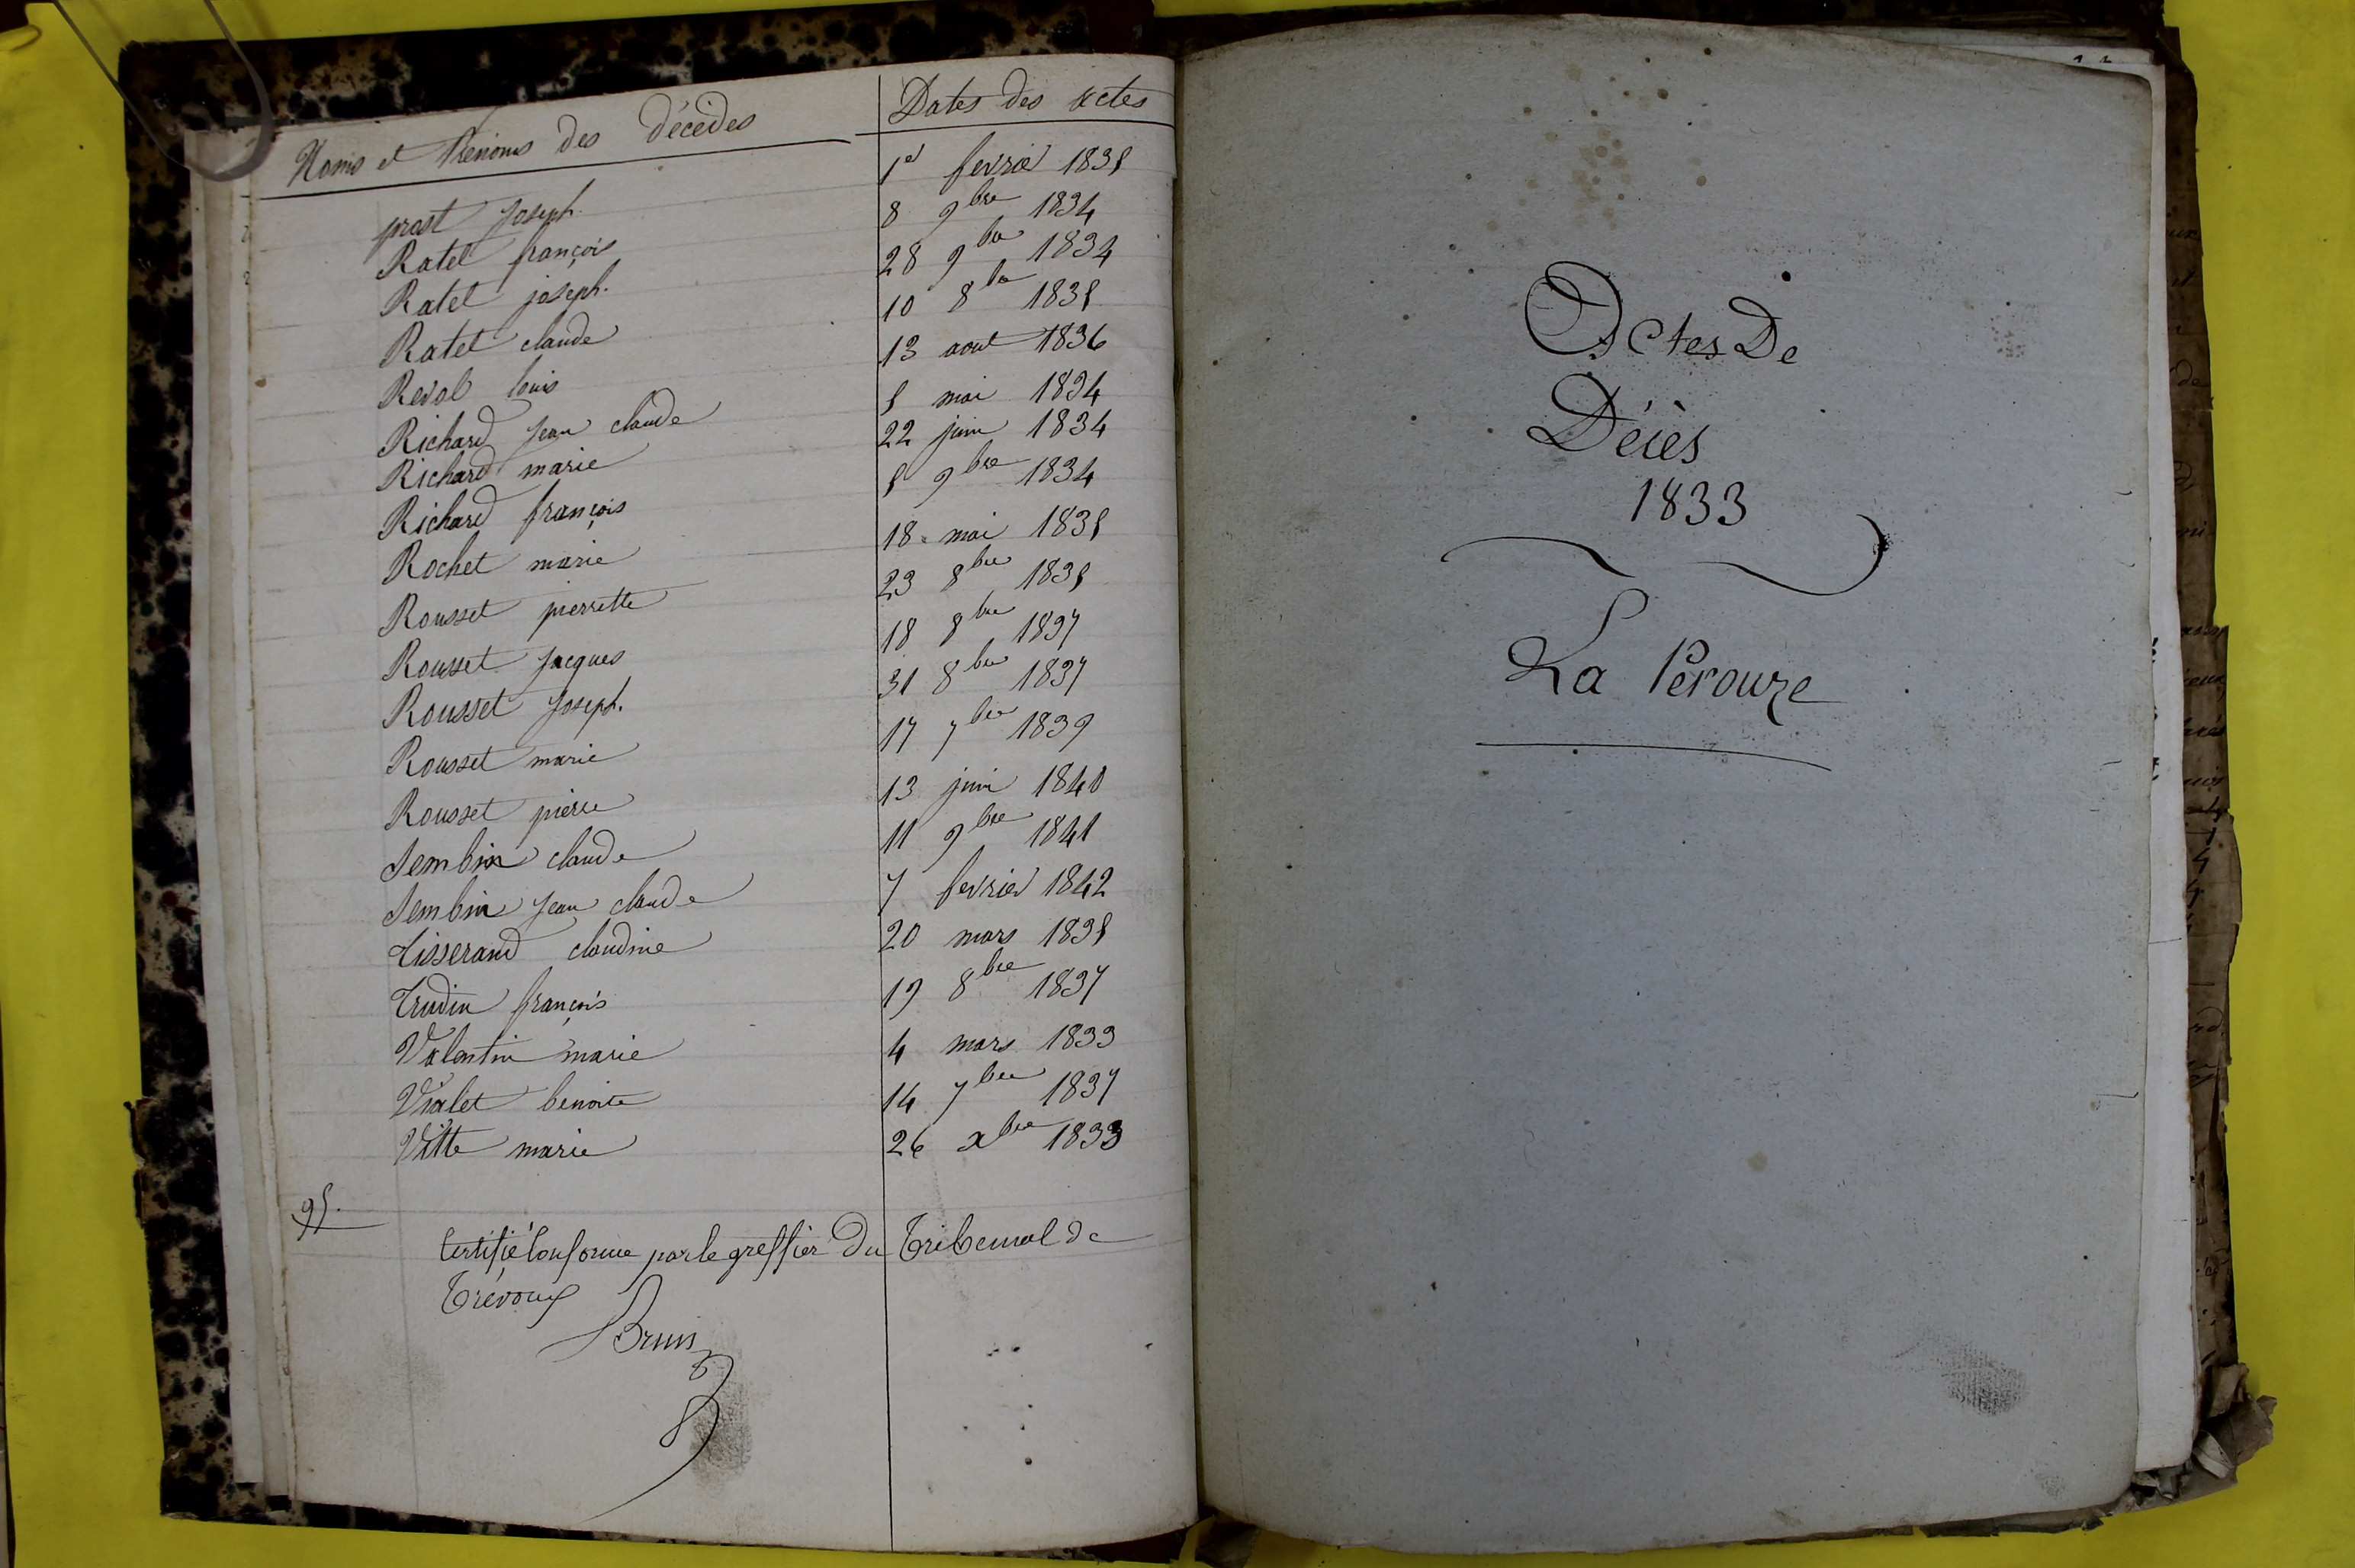 Noms et Prénoms des décédés Dates des actes
prost Joseph 1er fevrier 1835
Ratel françois 8 9bre 1834
Ratel joseph. 28 9bre 1834
Ratel claude 10 8bre 1835
Reval louis 13 aout 1836
Richard Jean claude 5 mai 1834
Richard marie 22 juin 1834
Richard françois 5 9bre 1834
Rochet marie 18 mai 1835
Rousset pierrette 23 8bre 1835
Rousset Jacques 18 8bre 1837
Rousset Joseph. 31 8bre 1837
Rousset marie 17 7bre 1839
Rousset pierre 13 juin 1840
Sembin claude 11 9bre 1841
Sembin Jean claude 7 fevrier 1842
Tisserand claudine 20 mars 1835
Trudin françois 19 8bre 1837
Valentin marie 4 mars 1833
Vialet benoite 14 7bre 1837
Vitte marie 26 xbre 1833
95.
Certifié conforme par le greffier Du Tribunal de
Trévoux
Brun
Actes De
Décès
1833
La Pérouze